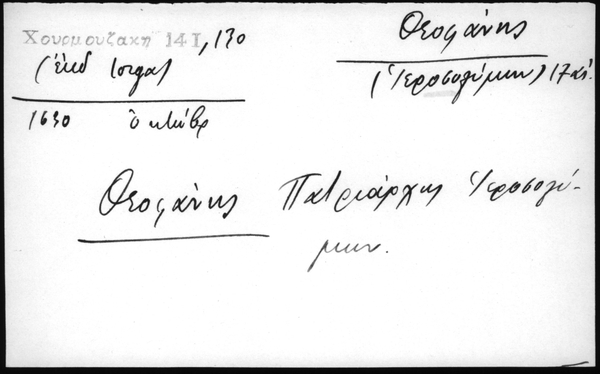 Χουρμουζάκη 141, 130
(ἐκδ
1630 ὀκτώβρ
Θεοφάνης
(Ἱεροσολύμων) 17 αἰ.
Θεοφάνης Πατριάρχης Ἱεροσολύ-
μων.